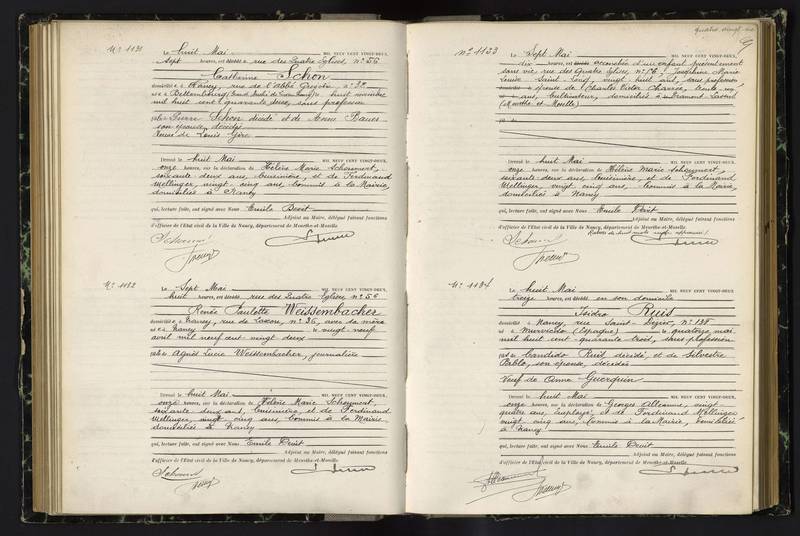 N° 1131
Le huit Mai MIL NEUF CENT VINGT-DEUX,
sept heures, est décédé rue des Quatre Eglises, n° 56
Catherine Schon
domicilié à Nancy, rue de l'abbé Grégoire, n° 32
né à Bettembourg (Grand Duché de Luxembourg) le huit novembre
mil huit cent quarante deux, sans profession
fille de Pierre Schon décédé et de Anne
son épouse, décédée
Veuve de Louis Gère
Dressé le huit Mai MIL NEUF CENT VINGT-DEUX,
onze heures, sur la déclaration de Hélène Marie Schouvert,
soixante deux ans, Cuisinière, et de Ferdinand
Mellinger, vingt-cinq ans, Commis à la Mairie,
domiciliés à Nancy
qui, lecture faite, ont signé avec Nous Emile
Adjoint au Maire, délégué faisant fonctions
d'officier de l'Etat civil de la Ville de Nancy, département de Meurthe-et-Moselle.
N° 1132
Le Sept Mai MIL NEUF CENT VINGT-DEUX,
huit heures, est décédé, rue des Quatre Eglises n° 56
Renée Paulette Weissembacher
domicilié à Nancy, rue de Laxou, n° 36, avec sa mère
né à Nancy le vingt neuf
avril mil neuf cent vingt deux
fille de Agnès Lucie Weissembacher, journalière
Dressé le huit Mai MIL NEUF CENT VINGT-DEUX,
onze heures, sur la déclaration de Hélène Marie Schouvert,
soixante deux ans, Cuisinière, et de Ferdinand
Mellinger vingt cinq ans, Commis à la Mairie
domiciliés à Nancy
qui, lecture faite, ont signé avec Nous Emile
Adjoint au Maire, délégué faisant fonctions
d'officier de l'Etat civil de la Ville de Nancy, département de Meurthe-et-Moselle.
quatre vingt
N° 1133
Le Sept Mai MIL NEUF CENT VINGT-DEUX,
dix heures, est accouchée d'un enfant présentement
sans vie, rue des Quatre Eglises, n° 56, Joséphine Marie
Louise, vingt huit ans, sans profession
épouse de Charles Victor, trente
ans, Cultivateur, domiciliés à
(Meurthe et Moselle)
Dressé le huit Mai MIL NEUF CENT VINGT-DEUX,
onze heures, sur la déclaration de Hélène Marie Schouvert,
soixante deux ans, Cuisinière, et de Ferdinand
Mellinger vingt cinq ans, Commis à la Mairie,
domiciliés à Nancy
qui, lecture faite, ont signé avec Nous Emile
Adjoint au Maire, délégué faisant fonctions
d'officier de l'Etat civil de la Ville de Nancy, département de Meurthe-et-Moselle.
N° 1134
Le huit Mai MIL NEUF CENT VINGT-DEUX,
heures, est décédé en son domicile
Isidro Ruis
domicilié à Nancy, rue Saint-Dizier, n° 138
né à (Espagne) le quatorze mai
mil huit cent quarante trois, sans profession
fils de Candido Ruis, décédé, et de Silvestra
Pablo, son épouse, décédée
Veuf de Anne Guerquin
Dressé le huit Mai MIL NEUF CENT VINGT-DEUX,
onze heures, sur la déclaration de Georges, vingt-
quatre ans, employé, et de Ferdinand Mellinger
vingt cinq ans, Commis à la Mairie, domiciliés
à Nancy
qui, lecture faite, ont signé avec Nous Emile
Adjoint au Maire, délégué faisant fonctions
d'officier de l'Etat civil de la Ville de Nancy, département de Meurthe-et-Moselle.